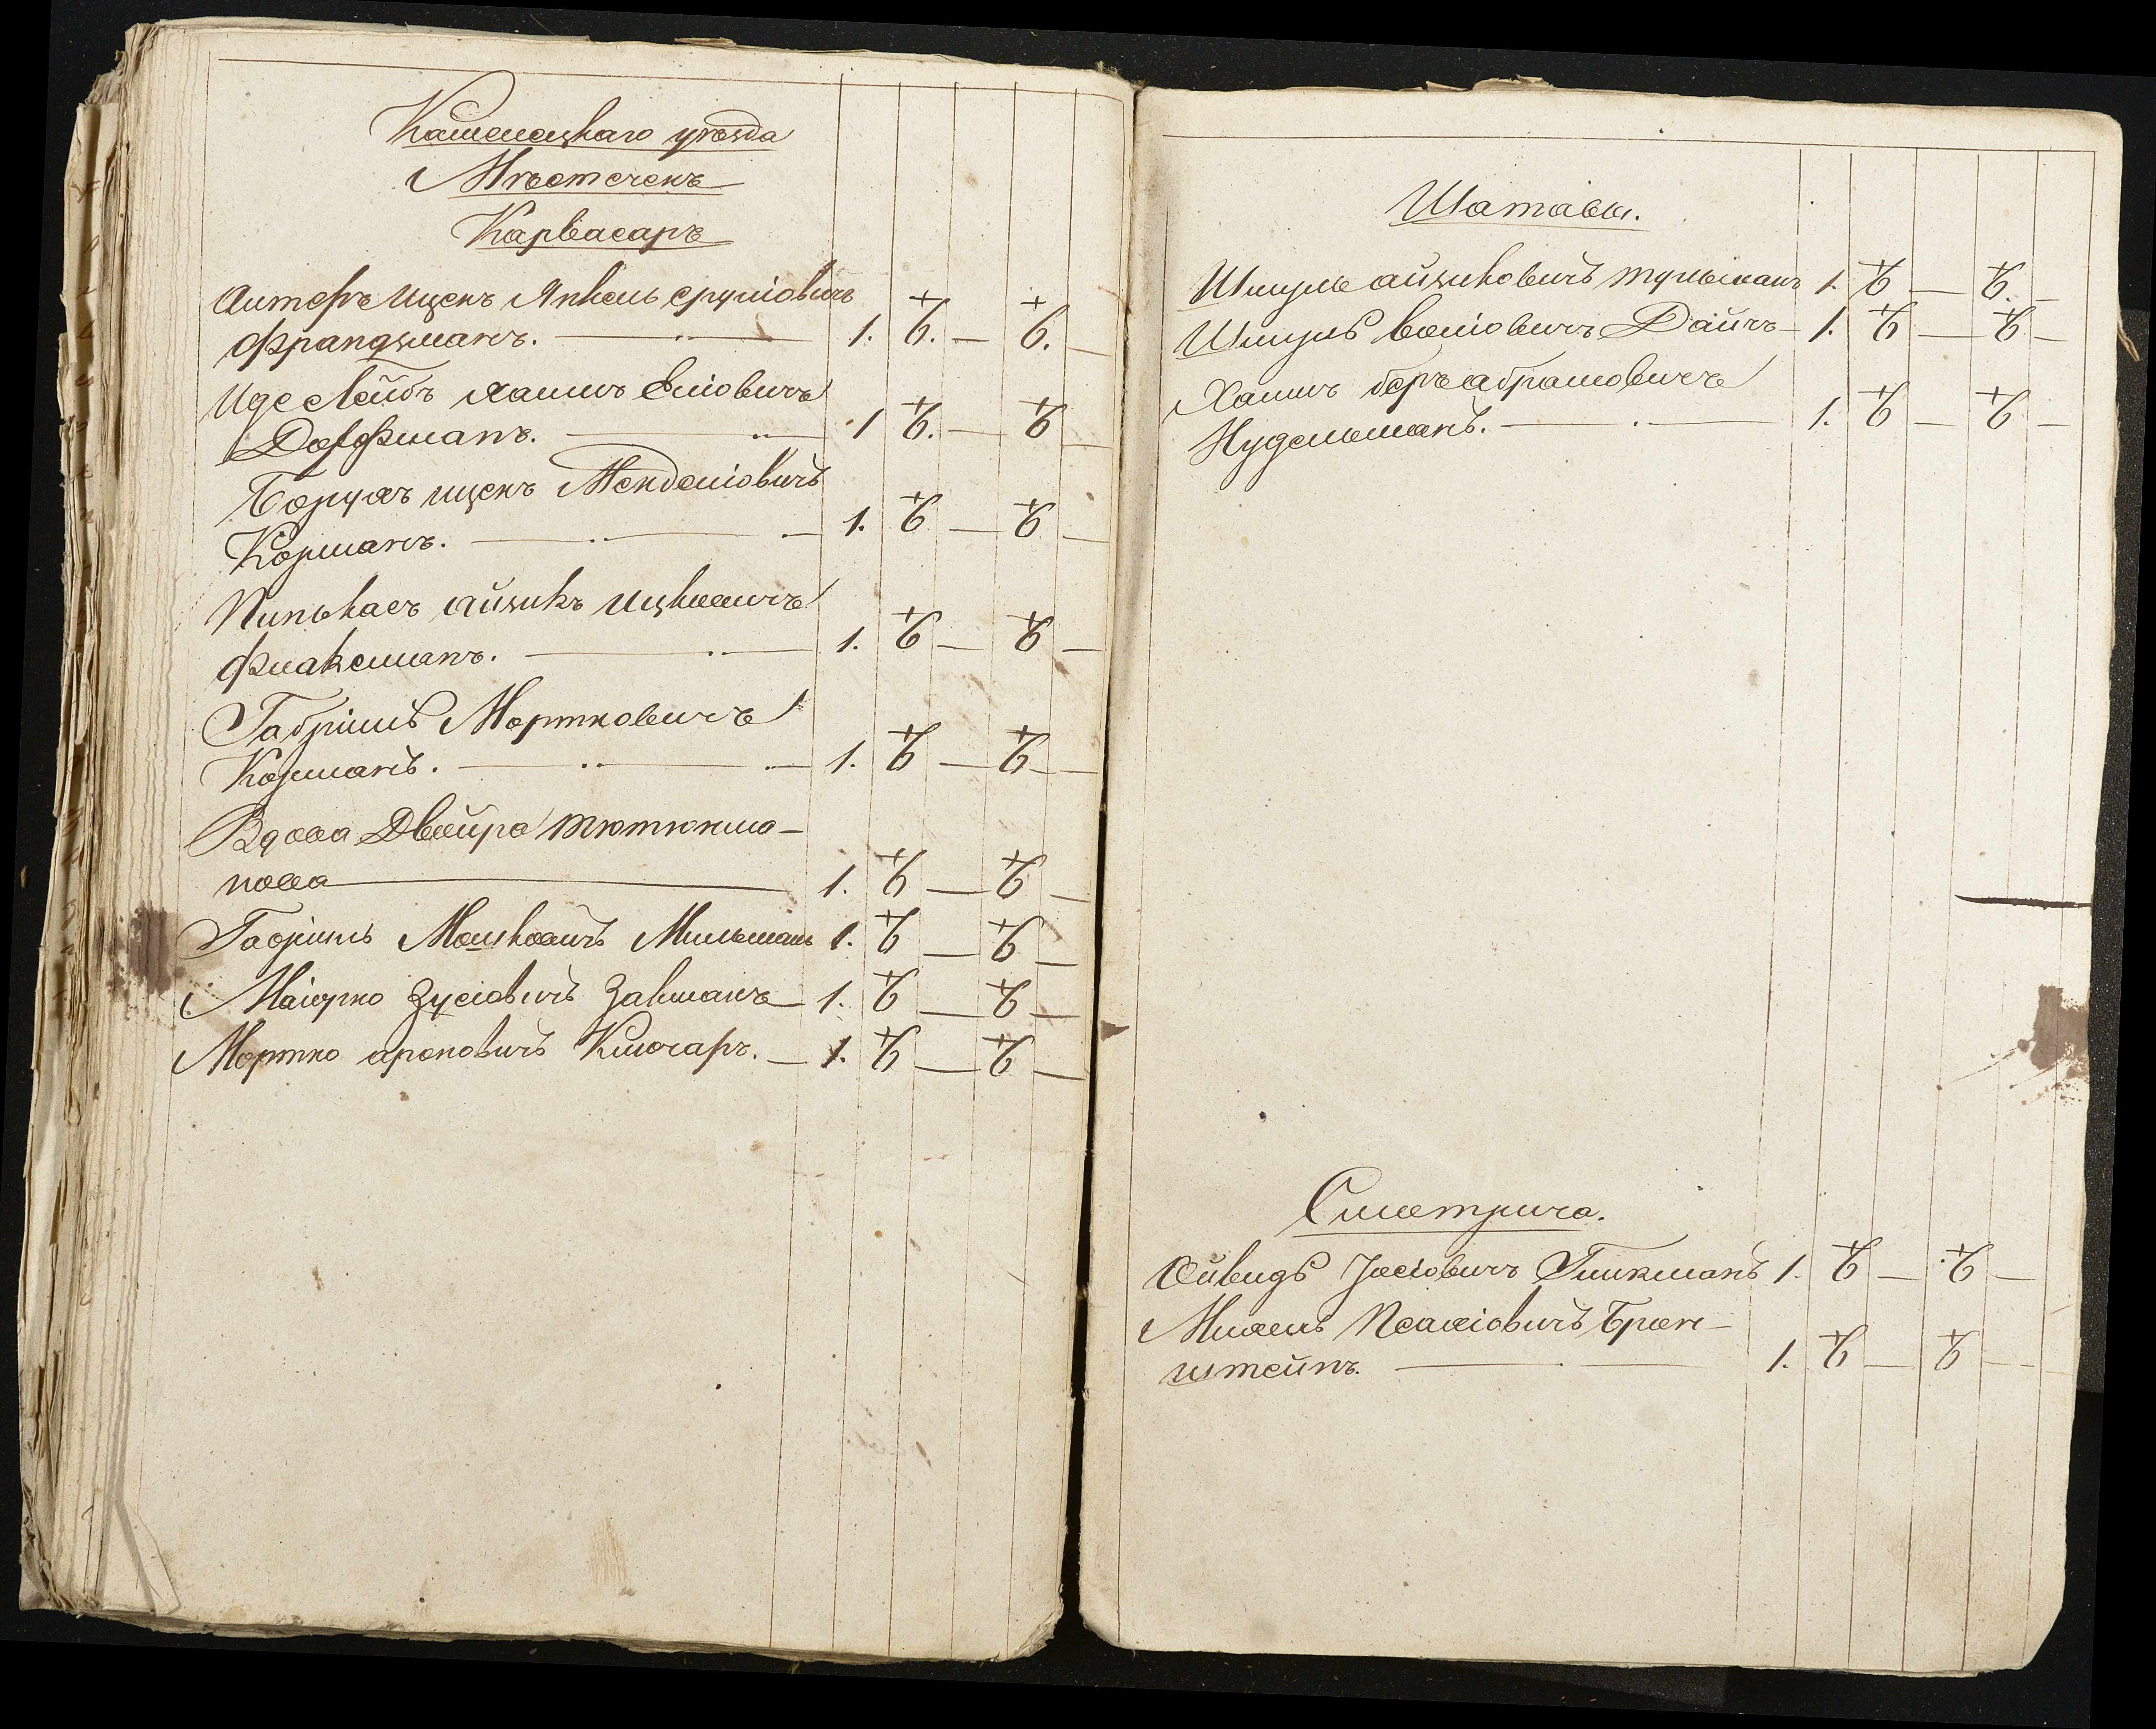 Каменецкаго уѣзда
Мѣстечекъ
Карвасаръ
Ицекъ Янкель Сруліовичъ
Францманъ. 1. 6. — 6. —
Иде Лейбъ Хаимъ Еліовичъ
Дорфманъ. 1 6. — 6 —
Борухъ Ицекъ Менделіовичъ
Корманъ. 1. 6 — 6 —
Пинькасъ Айзикъ Ицковичъ
Флаксманъ. 1. 6 — 6 —
Габріиль Мортковичъ
Корманъ. 1. 6 — 6 —
Вдова Двойра Тютюнно-
пова 1. 6 — 6 —
Габріиль Мошковичъ Мильманъ 1. 6 — 6 —
Маіорко Зусіовичъ Закманъ 1. 6 — 6 —
Мортко Ароновичъ Ключаръ. 1. 6 — 6 —
Шатавы.
Шмуль Айзиковичъ Тулынанъ 1. 6 — 6. —
Шмуль Воліовичъ Дайчъ 1. 6 — 6 —
Хаимъ Беръ Абрамовичъ
Нудельманъ. 1. 6 — 6 —
Смотрича.
Ойвидъ Іосіовичъ Гликманъ 1. 6 — 6 —
Михель Псахіовичъ Брон-
штейнъ. 1. 6 — 6 —